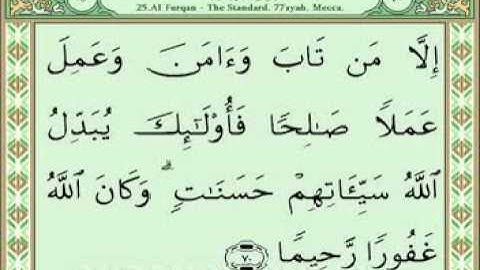 25.Al Furqan - The Standard. 77ayah. Mecca.
إِلَّا مَن تَابَ وَءَامَنَ وَعَمِلَ
عَمَلًا صَـٰلِحًا فَأُو۟لَـٰٓئِكَ يُبَدِّلُ
ٱللَّهُ سَيِّـَٔاتِهِمْ حَسَنَـٰتٍ ۗ وَكَانَ ٱللَّهُ
غَفُورًا رَّحِيمًا ٧٠